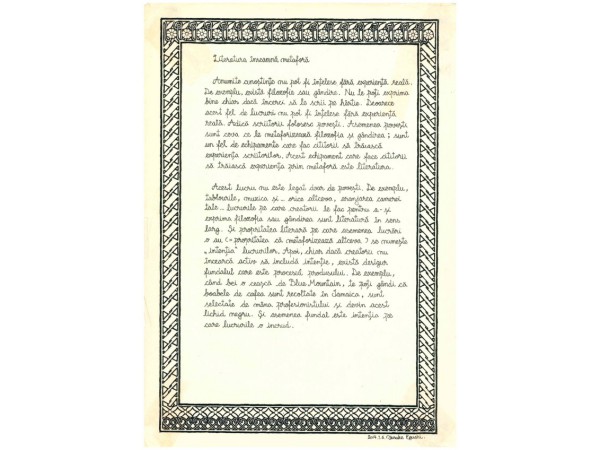 Literatura înseamnă metaforă
Anumite cunoștințe nu pot fi înțelese fără experiență reală.
De exemplu, există filozofie sau gândire. Nu le poți exprima
bine chiar dacă încerci să le scrii pe hârtie. Deoarece
acest fel de lucruri nu pot fi înțelese fără experiență
reală. Adică scriitorii folosesc povești. Asemenea povești
sunt ceva ce le metaforizează filozofia și gândirea; sunt
un fel de echipamente care fac cititorii să trăiască
experiența scriitorilor. Acest echipament care face cititorii
să trăiască experiența prin metaforă este literatura.
Acest lucru nu este legat doar de povești. De exemplu,
tablourile, muzica și ... orice altceva, aranjarea camerei
tale... lucrurile pe care creatorii le fac pentru a-și
exprima filozofia sau gândirea sunt literatură în sens
larg. Și propritatea literară pe care asemenea lucrări
o au (= propritatea că metaforizează altceva) se numește
„intenția” lucrurilor. Apoi, chiar dacă creatorii nu
încearcă activ să includă intenție, există desigur
fundalul care este procesul produsului. De exemplu,
când bei o ceașcă de Blue Mountain, te poți gândi că
boabele de cafea sunt recoltate în Jamaica, sunt
selectate de mâna profesionistului și devin acest
lichid negru. Și asemenea fundal este intenția pe
care lucrurile o includ.